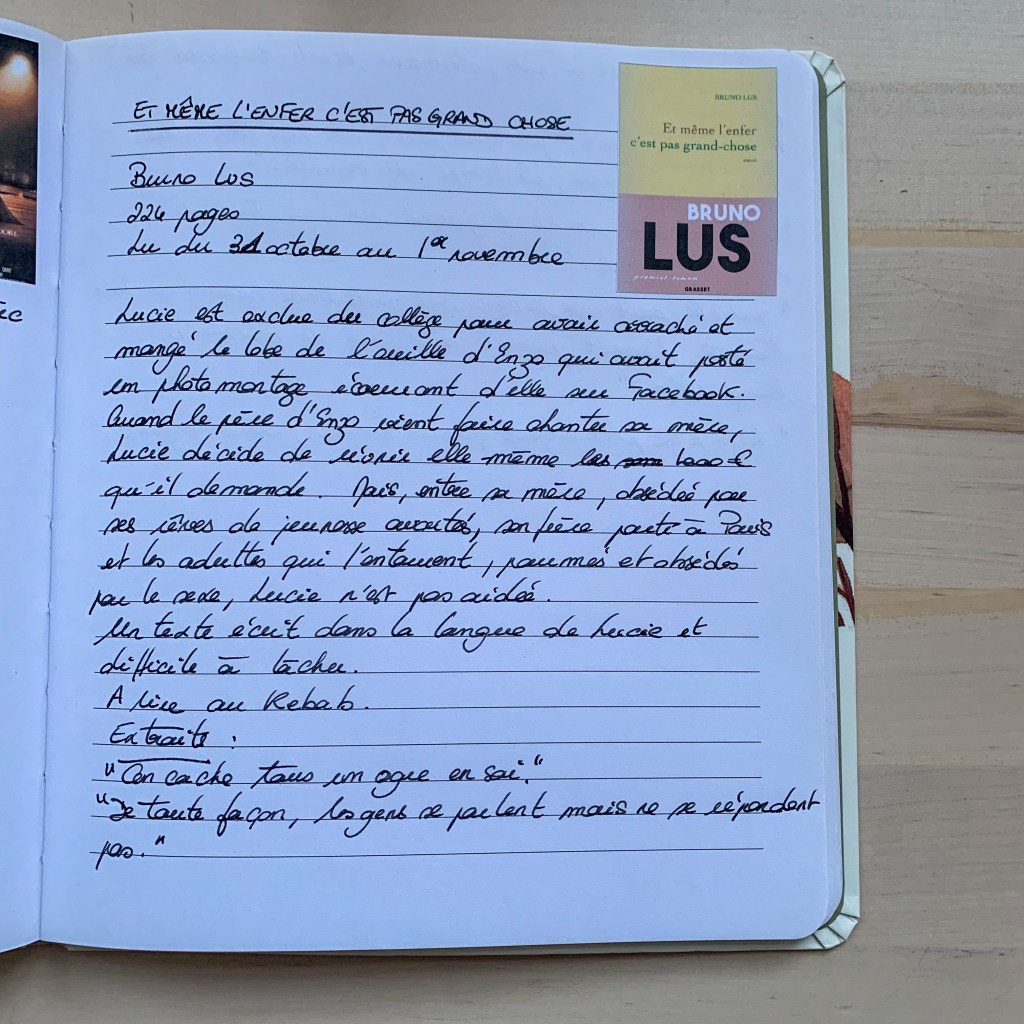 ET MÊME L'ENFER C'EST PAS GRAND CHOSE
Bruno Lus
224 pages
Lu du 31 octobre au 1er novembre
BRUNO LUS
Et même l'enfer
c'est pas grand-chose
roman
BRUNO
LUS
premier roman
GRASSET
ec
Lucie est exclue du collège pour avoir arraché et
mangé le lobe de l'oreille d'Enzo qui avait posté
un photomontage écoeurant d'elle sur Facebook.
Quand le père d'Enzo vient faire chanter sa mère,
Lucie décide de réunir elle-même les 1000 €
qu'il demande. Mais, entre sa mère, obsédée par
ses rêves de jeunesse avortés, son frère parti à Paris
et les adultes qui l'entourent, paumés et obsédés
par le sexe, Lucie n'est pas aidée.
Un texte écrit dans la langue de Lucie et
difficile à lâcher.
A lire au Kebab.
Extraits :
"On cache tous un ogre en soi."
"De toute façon, les gens se parlent mais ne se répondent
pas."